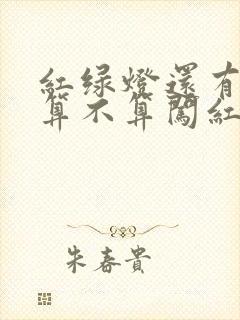 紅绿燈還有
算不算闖紅
朱春貴